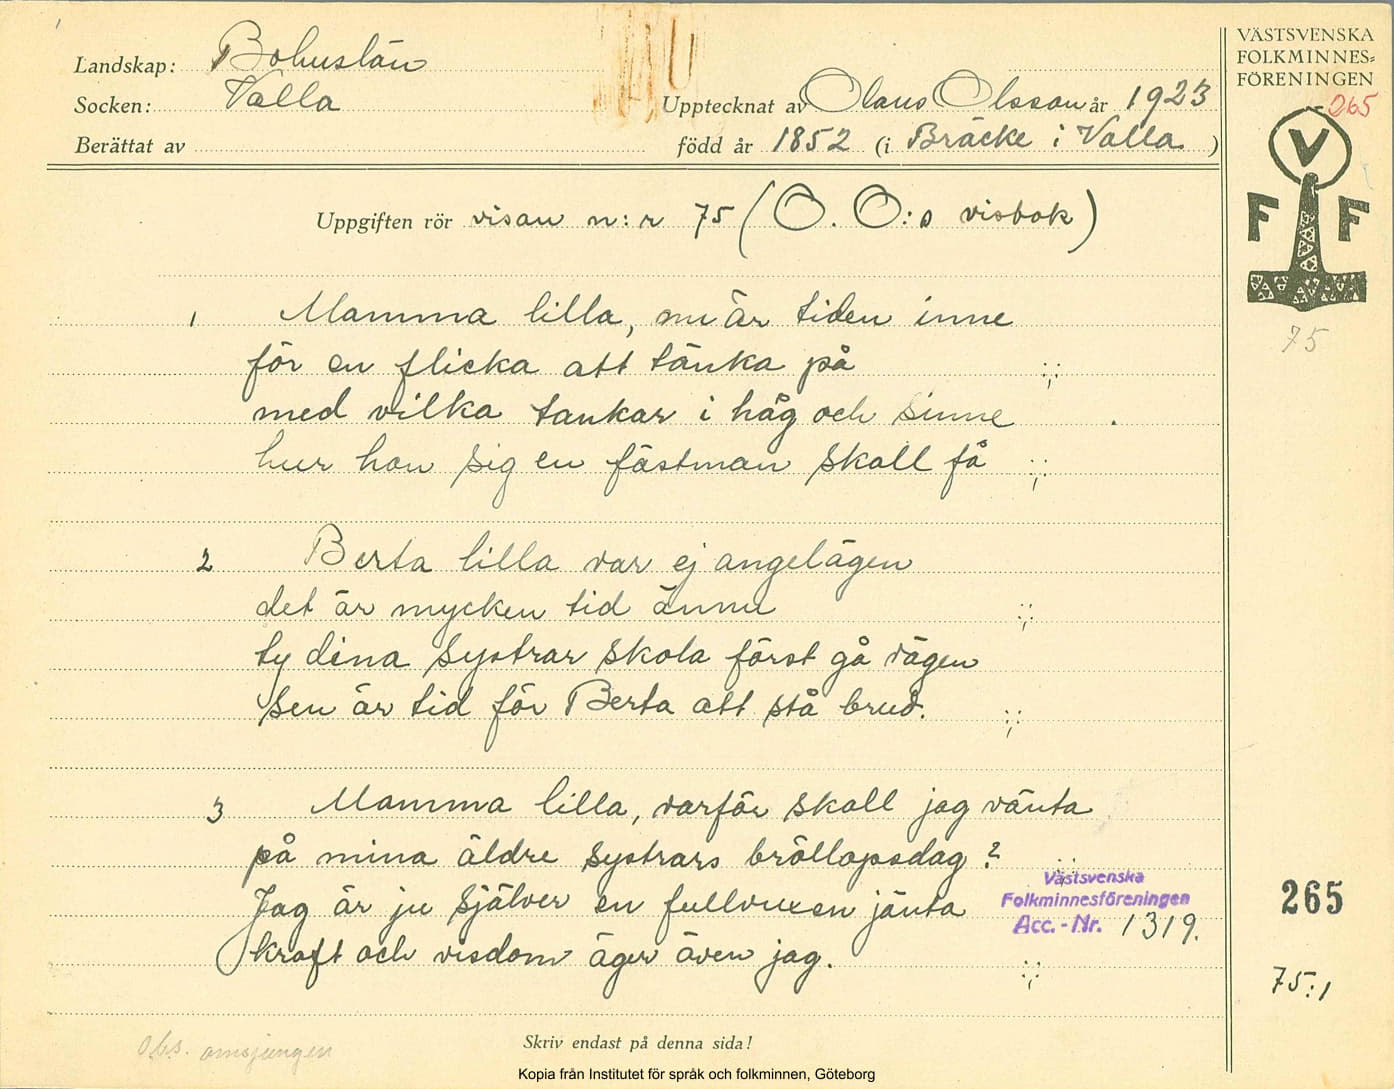 Landskap: Bohuslän
Socken: Valla
Berättat av
Upptecknat av Olaus Olsson år 1923
född år 1852 (i Bräcke i Valla )
VÄSTSVENSKA
FOLKMINNES=
FÖRENINGEN
265
V
F F
75
Uppgiften rör visan n:r 75 (O. O:s visbok)
1 Mamma lilla, nu är tiden inne
för en flicka att tänka på
med vilka tankar i håg och sinne
hur hon sig en fästman skall få
2 Berta lilla var ej angelägen
det är mycken tid ännu
ty dina systrar skola först gå vägen
sen är tid för Berta att stå brud.
3 Mamma lilla, varför skall jag vänta
på mina äldre systrars bröllopsdag?
Jag är ju självev en fullvuxen jänta
kraft och visdom äger även jag.
Västsvenska
Folkminnesföreningen
Acc.-Nr. 1319.
265
75:1
Obs. omsjungen
Skriv endast på denna sida!
Kopia från Institutet för språk och folkminnen, Göteborg